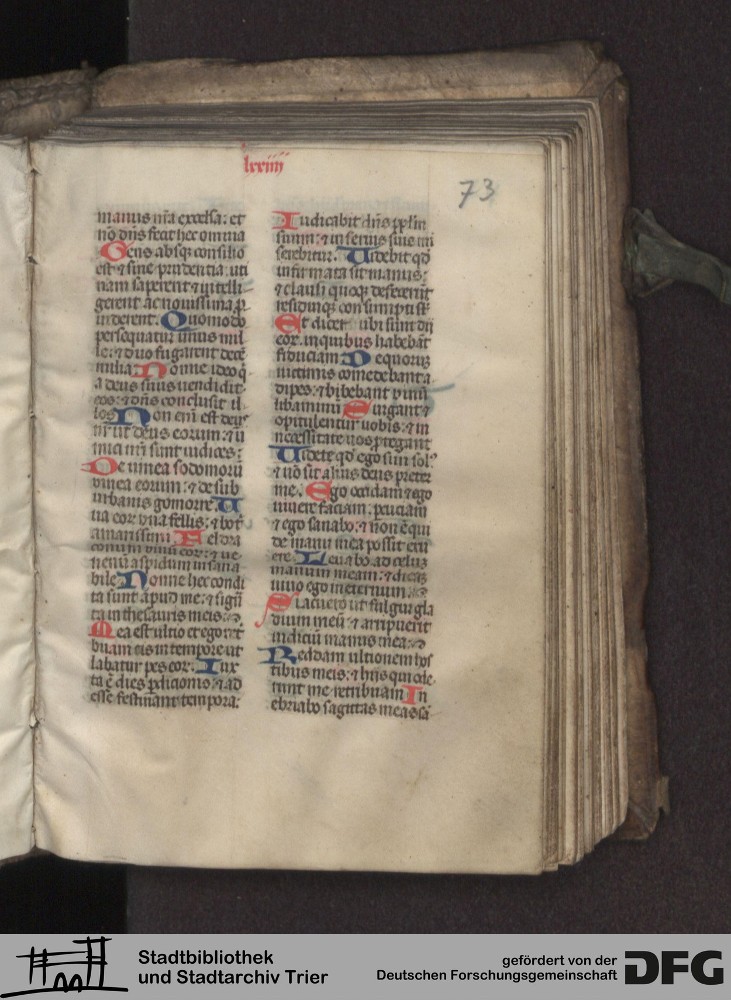 lxxiiii
73
manus nr̄a excelsa: et
nō dn̄s fecit hec omnia
Gens absq; consilio
est ⁊ sine prudentia uti
nam saperent ⁊ intelli
gerent ac nouissima ꝓ
uiderent. Quomodo
persequatur unus mil
le: ⁊ duo fugarent decē
milia Nonne ideo q̄
a deus suus uendidit
eos: ⁊ dn̄s conclusit il
los Non em̄ est deus
nr̄ ut deus eorum: ⁊ ī
mici nr̄i sunt iudices:
De uinea sodomorū
vinea eorum: ⁊ de sub
urbanis gomorre. U
ua eor uua fellis: ⁊ botr
amarissimi. Fel dra
conum uinū eor: ⁊ ue
nenū aspidum insana
bile Nonne hec condi
ta sunt apud me: ⁊ sign̄
ta in thesauris meis:
Mea est ultio et ego ret
buam eis in tempore ut
labatur pes eor: Iux
ta ē dies ꝑdicionis: ⁊ ad
esse festinant tempora:
Iudicabit dn̄s pplm̄
suum: ⁊ in seruis suis mi
serebitur. Uidebit qd
infirmata sit manus:
⁊ clausi quoq; defecerūt
residuiq; consumpti sūt
Et dicet ubi sunt dij
eor. in quibus habebāt
fiduciam De quorum
uictimis comedebant a
dipes: ⁊ bibebant uinū
libaminū Surgant ⁊
opitulentur uobis: ⁊ in
necessitate uos protegant
Uidete qd ego sum sol⁹
⁊ nō sit alius deus preter
me. Ego occidam ⁊ ego
uiuere faciam: percutiam
⁊ ego sanabo: ⁊ non ē qui
de manu mea possit eru
ere Leuabo ad celum
manum meam: ⁊ dicam
uiuo ego in eternum:
Si acuero ut fulgur gla
dium meū: ⁊ arripuerit
iudiciū manus mea:
Reddam ultionem hos
tibus meis: ⁊ hijs qui ode
runt me retribuam In
ebriabo sagittas meas sā
Stadtbibliothek
und Stadtarchiv Trier
gefördert von der
Deutschen Forschungsgemeinschaft
DFG